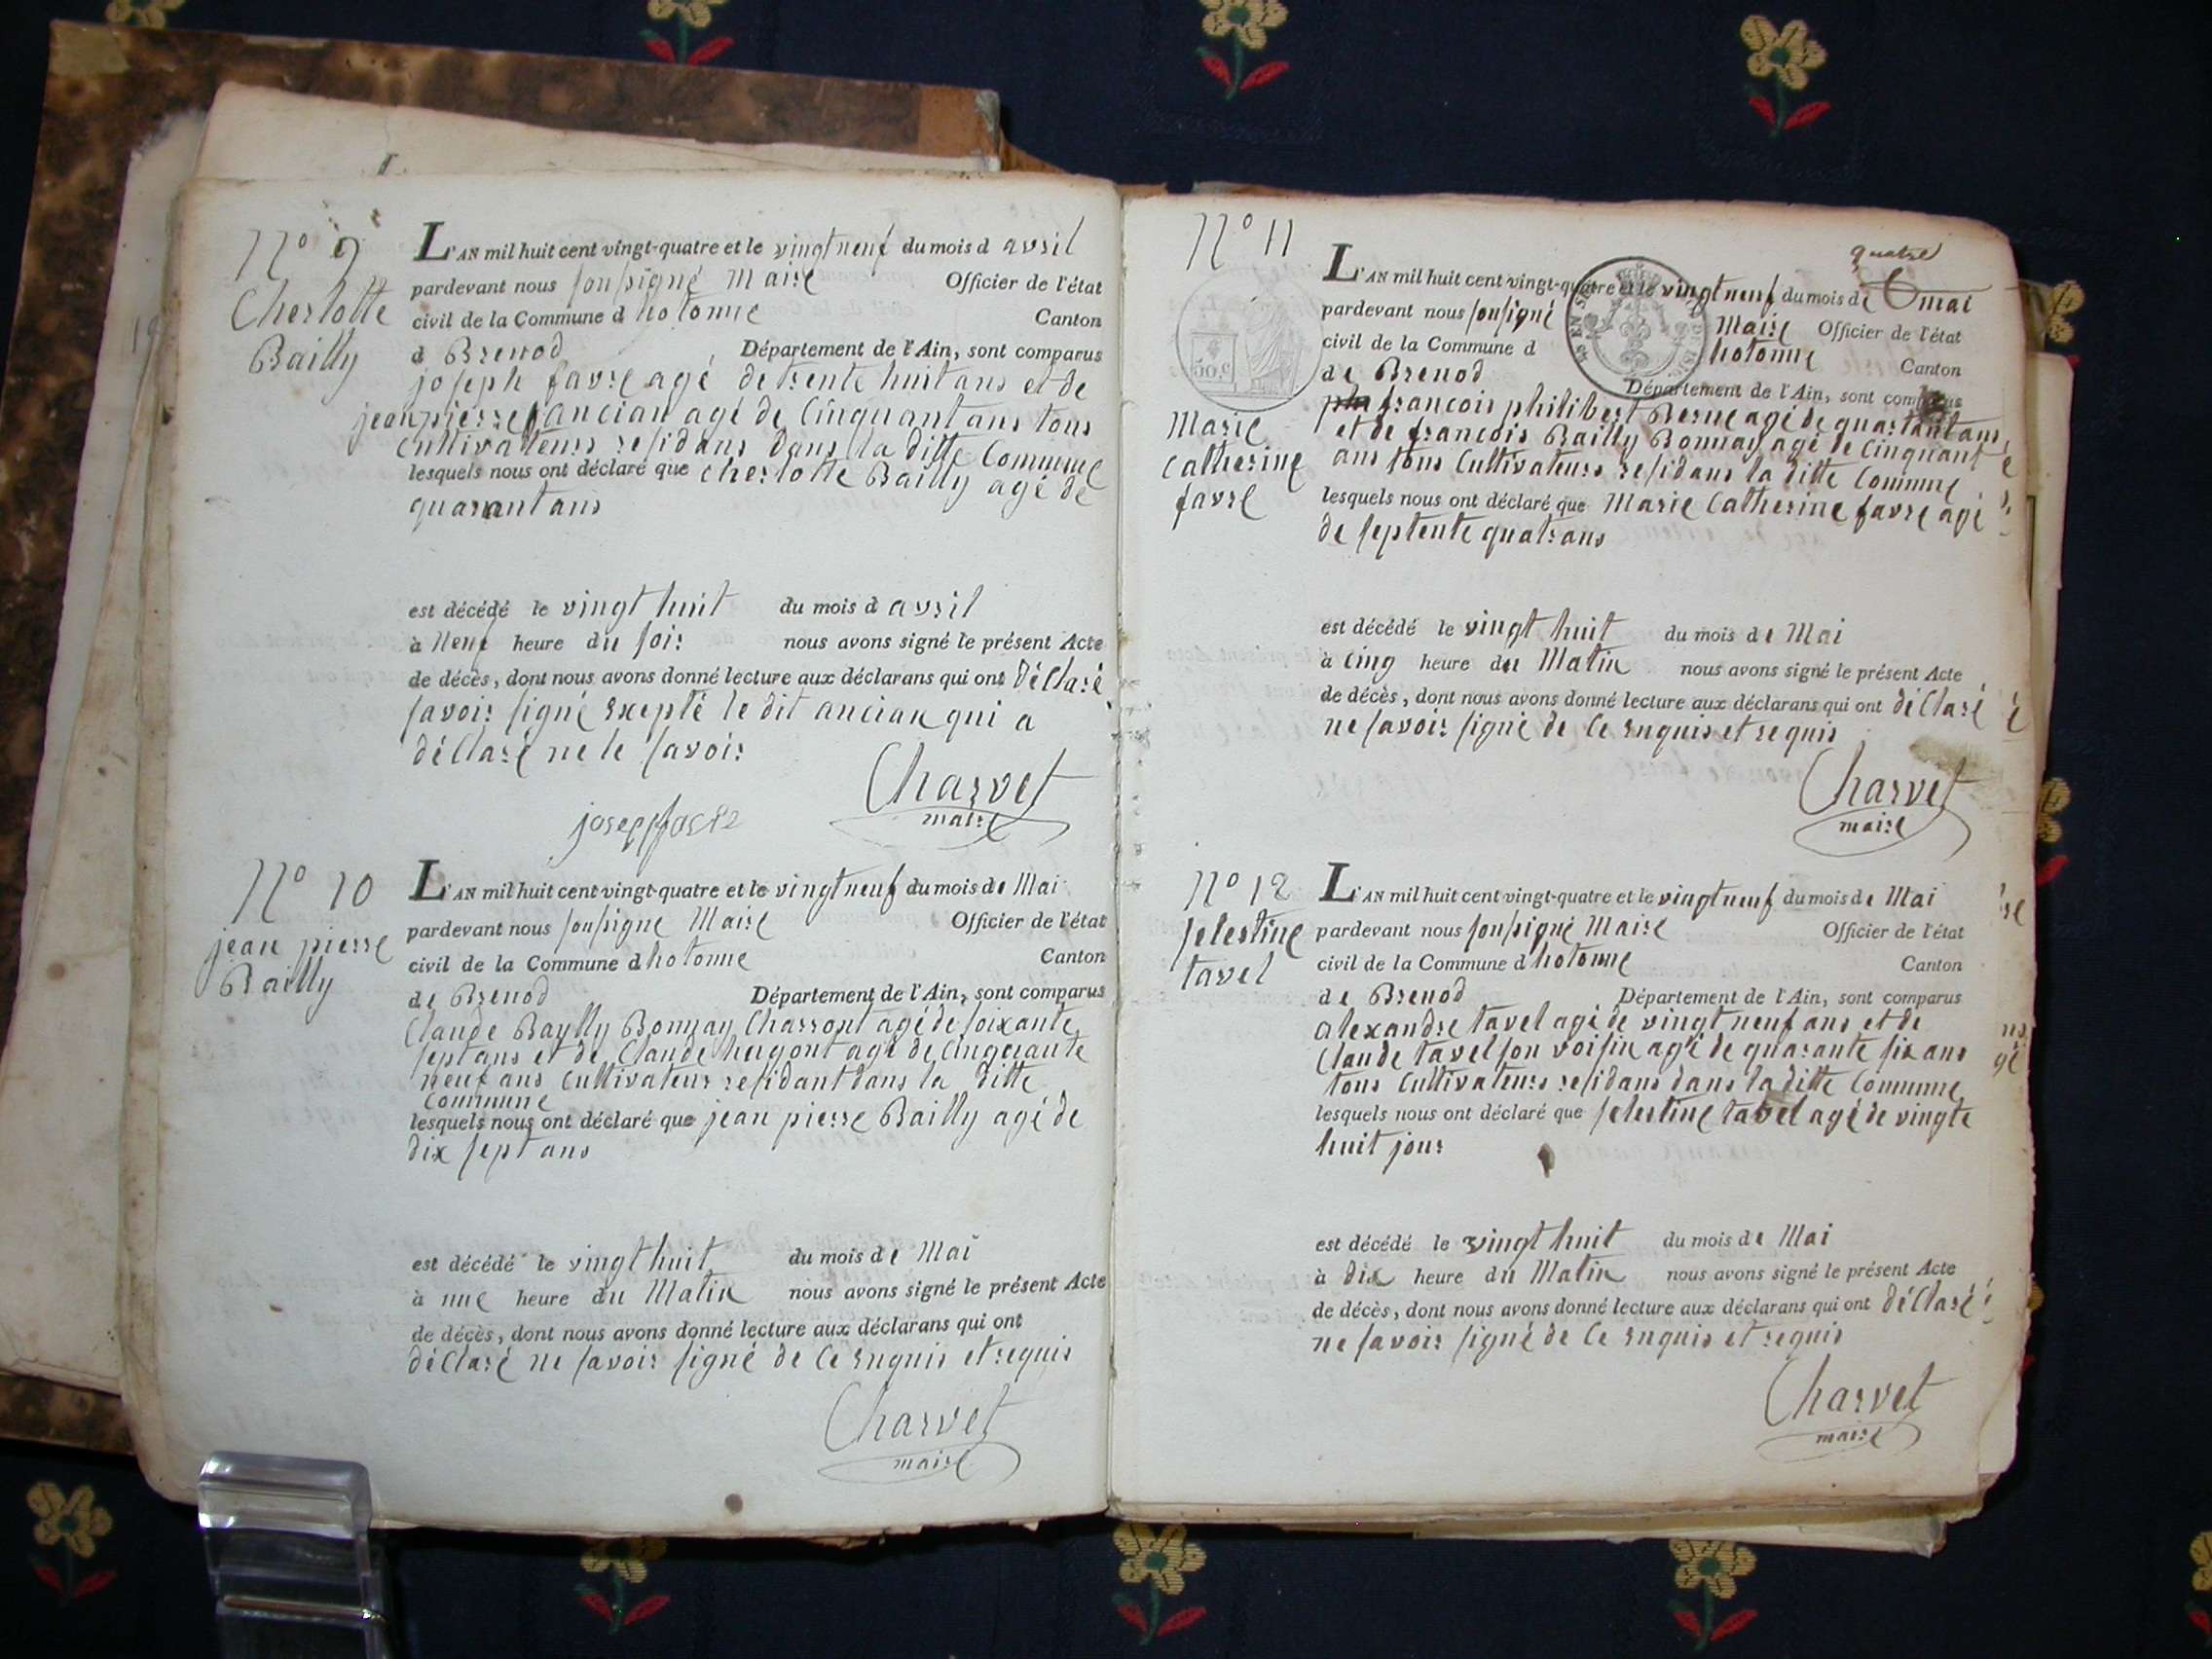 N° 9
Cherlotte
Bailly
L'AN mil huit cent vingt-quatre et le vingt neuf du mois d avril
pardevant nous sousigné Maire Officier de l'état
civil de la Commune d hotonne Canton
d Brenod Département de l'Ain, sont comparus
joseph favre agé de trente huit ans et de
jean pierre ancian agé de Cinquant ans tous
Cultivateurs residans dans la ditte Commune
lesquels nous ont déclaré que Cherlotte Bailly agé de
quarant ans
est décédé le vingt huit du mois d avril
à Neuf heure du soir nous avons signé le présent Acte
de décès, dont nous avons donné lecture aux déclarans qui ont déclaré
savoir signé Exepté le dit ancian qui a
déclaré ne le savoir
Charvet
maire
N° 10
jean pierre
Bailly
L'AN mil huit cent vingt-quatre et le vingt neuf du mois de Mai
pardevant nous sousigne Maire Officier de l'état
civil de la Commune d hotonne Canton
de Brenod Département de l'Ain, sont comparus
Claude Baylly Bonnay Charront agé de soixante
sept ans et de Claude hugont agé de Cinquante
neuf ans Cultivateur residant dans la ditte
Commune
lesquels nous ont déclaré que jean pierre Bailly agé de
dix sept ans
est décédé le vingt huit du mois de Mai
à une heure du Matin nous avons signé le présent Acte
de décès, dont nous avons donné lecture aux déclarans qui ont
déclaré ne savoir signé de Ce Enquis et requis
Charvet
maire
N° 11
quatre
Marie
Catherine
favre
50.c
L'AN mil huit cent vingt-quatre et le vingt neuf du mois de mai
pardevant nous sousigné Maire Officier de l'état
civil de la Commune d hotonne Canton
de Brenod Département de l'Ain, sont comparus
francois philibert Berne agé de quarant ans
et de francois Bailly Bonnay agé de Cinquant
ans tous Cultivateurs residans la ditte Commune
lesquels nous ont déclaré que Marie Catherine favre agé
de septente quatrans
est décédé le vingt huit du mois de Mai
à Cinq heure du Matin nous avons signé le présent Acte
de décès, dont nous avons donné lecture aux déclarans qui ont déclaré
ne savoir signé de Ce Enquis et requis
Charvet
maire
N° 12
selestine
tavel
L'AN mil huit cent vingt-quatre et le vingt neuf du mois de Mai
pardevant nous sousigné Maire Officier de l'état
civil de la Commune d hotonne Canton
de Brenod Département de l'Ain, sont comparus
alexandre tavel agé de vingt neuf ans et de
Claude tavel son voisin agé de quarante six ans
tous Cultivateurs residans dans la ditte Commune
lesquels nous ont déclaré que selestine tavel agé de vingte
huit jour
est décédé le vingt huit du mois de Mai
à dix heure du Matin nous avons signé le présent Acte
de décès, dont nous avons donné lecture aux déclarans qui ont déclaré
ne savoir signé de Ce Enquis et requis
Charvet
maire